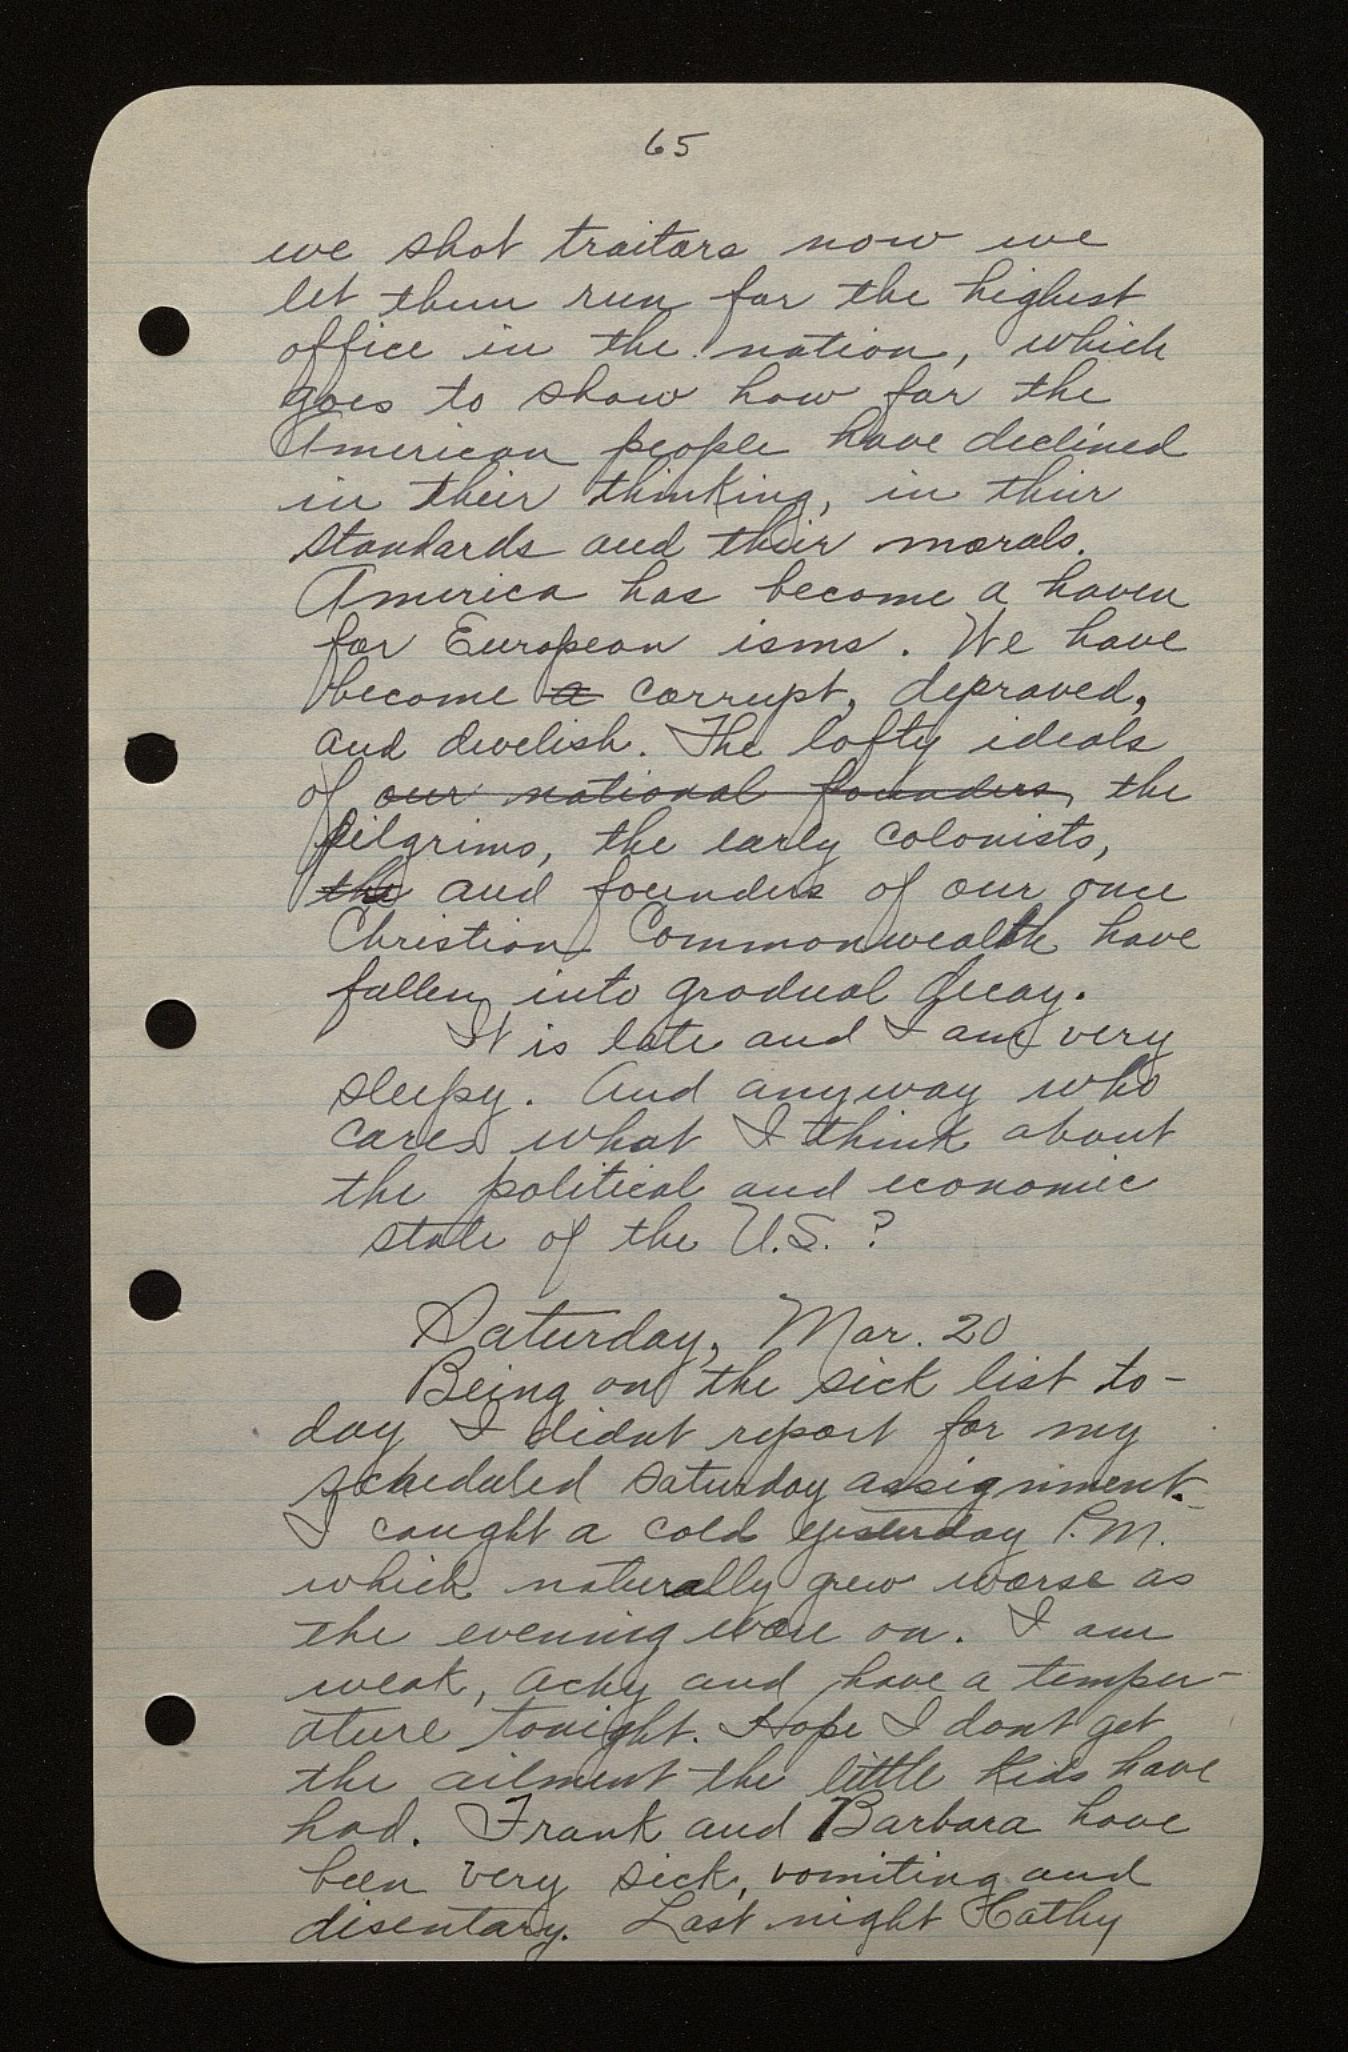 65
we shot traitors now we
let them run for the highest
office in the nation, which
goes to show how far the
American people have declined
in their thinking, in their
standards and their morals.
America has become a haven
for European isms. We have
become a corrupt, depraved,
and divelish. The lofty ideals
of our national founders, the
pilgrims, the early colonists,
the and founders of our once
Christian Commonwealth have
fallen into gradual decay.
It is late and I am very
sleepy. And anyway who
cares what I think about
the political and economic
state of the U.S.?
Saturday, Mar. 20
Being on the sick list to-
day I didnt report for my
scheduled Saturday assignment.
I caught a cold yesterday P.M.
which naturally grew worse as
the evening wore on. I am
weak, achy and have a temper-
ature tonight. Hope I dont get
the ailment the little kids have
had. Frank and Barbara have
been very sick, vomiting and
disentary. Last night Kathy